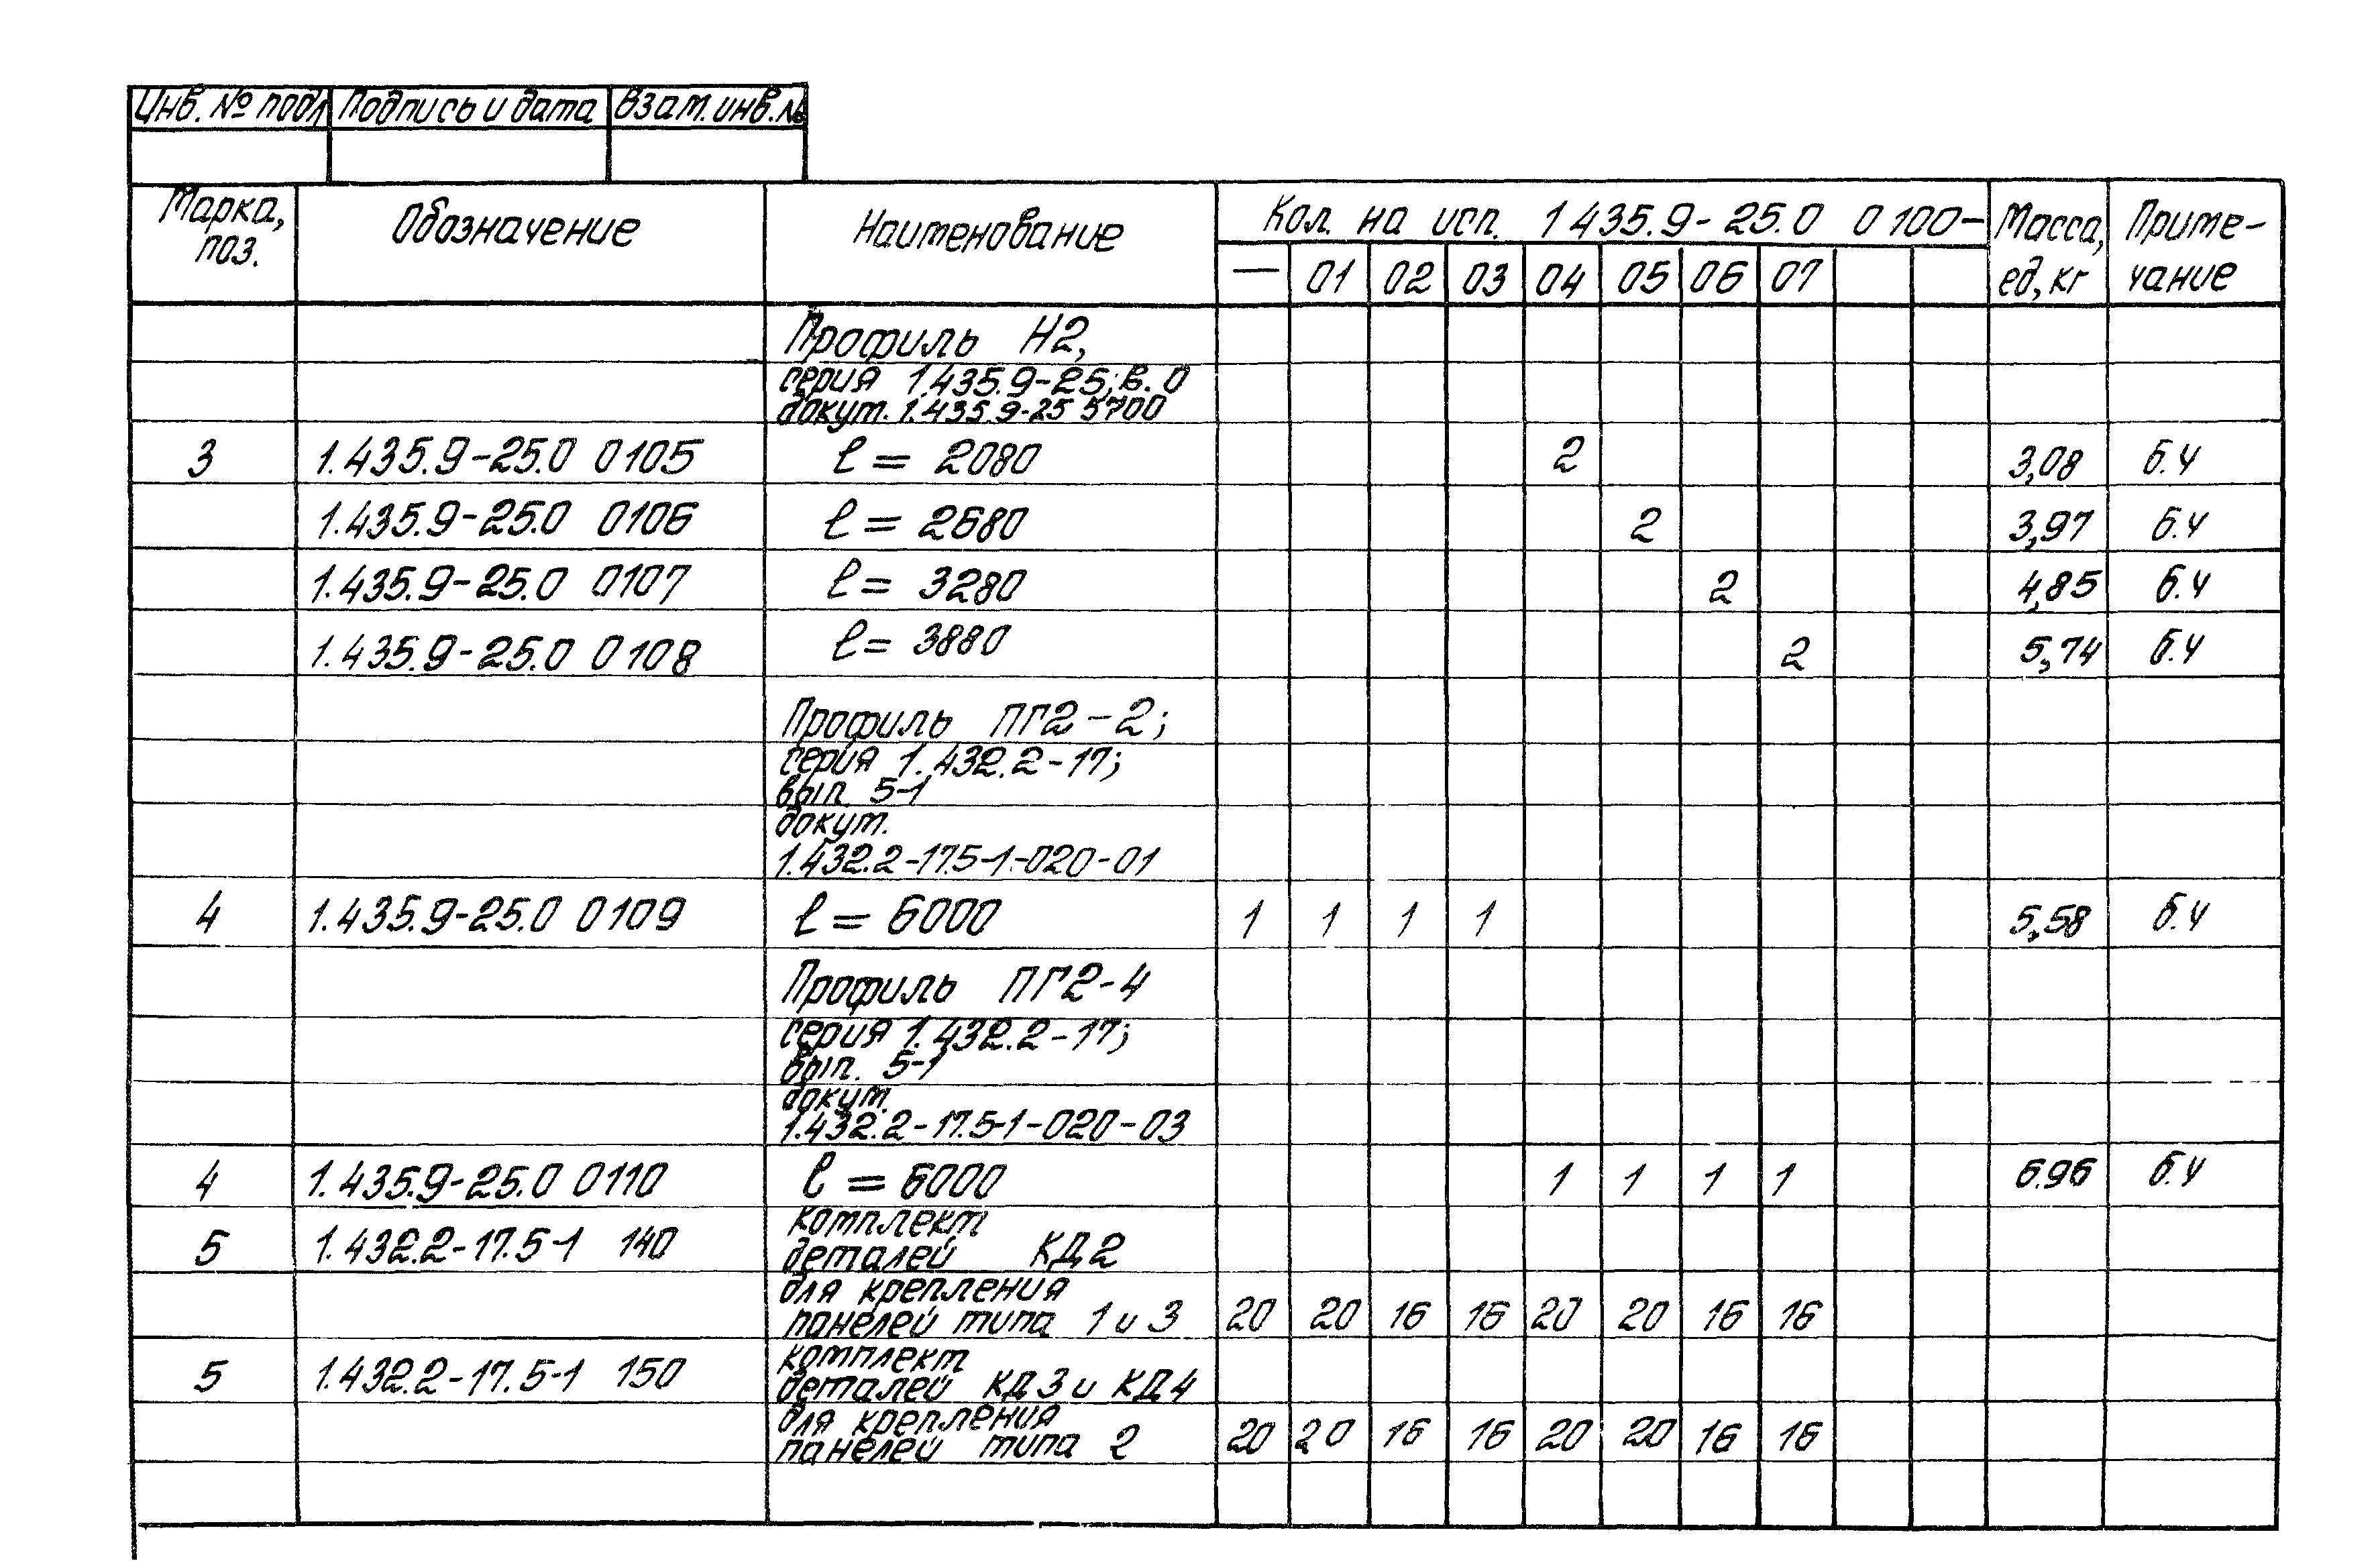 Инв. № подл Подпись и дата Взам. инв. №
Марка, поз. Обозначение Наименование Кол. на исп. 1 435.9-25.0 0100- Масса, ед, кг Приме-чание
— 01 02 03 04 05 06 07
Профиль Н2,
серия 1.435.9-25; в. 0
докум. 1.435.9-25 5700
3 1.435.9-25.0 0105 ℓ = 2080 2 3,08 б.ч
1.435.9-25.0 0106 ℓ = 2680 2 3,97 б.ч
1.435.9-25.0 0107 ℓ = 3280 2 4,85 б.ч
1.435.9-25.0 0108 ℓ = 3880 2 5,74 б.ч
Профиль ПГ2-2;
серия 1.432.2-17;
вып. 5-1
докум.
1.432.2-17.5-1-020-01
4 1.435.9-25.0 0109 ℓ = 6000 1 1 1 1 5,58 б.ч
Профиль ПГ2-4
серия 1.432.2-17;
вып. 5-1
докум.
1.432.2-17.5-1-020-03
4 1.435.9-25.0 0110 ℓ = 6000 1 1 1 1 6.96 б.ч
комплект
5 1.432.2-17.5-1 140 деталей КД2
для крепления
панелей типа 1 и 3 20 20 16 16 20 20 16 16
комплект
5 1.432.2-17.5-1 150 деталей КД3 и КД4
для крепления
панелей типа 2 20 20 16 16 20 20 16 16